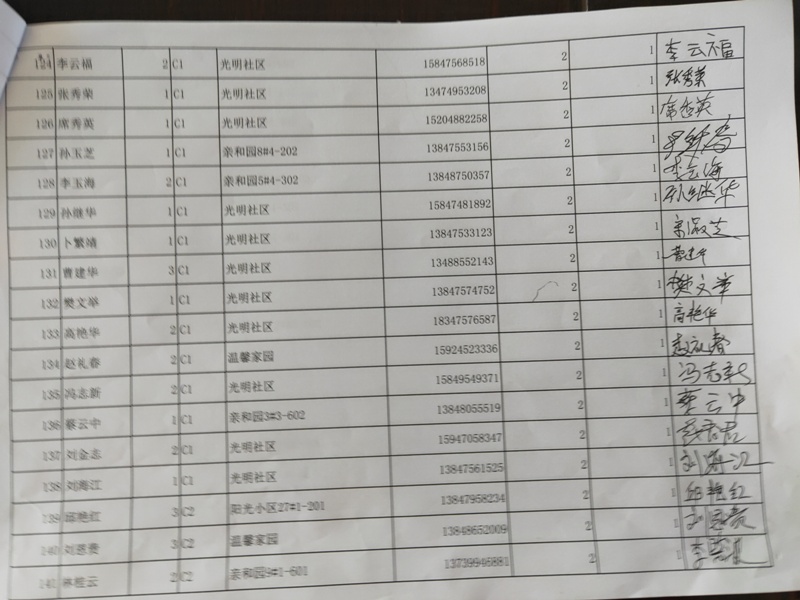 124 李云福 2 C1 光明社区 15847568518 2 1 李云福
125 张秀荣 1 C1 光明社区 13474953208 2 1 张秀荣
126 席秀英 1 C1 光明社区 15204882258 2 1
127 孙玉芝 1 C1 亲和园8#4-202 13847553156 2 1
128 李玉海 2 C1 亲和园5#4-302 13848750357 2 1 李玉海
129 孙继华 1 C1 光明社区 15847481892 2 1 孙继华
130 卜繁靖 1 C1 光明社区 13847533123 2 1
131 曹建华 3 C1 光明社区 13488552143 2 1
132 樊文举 1 C1 光明社区 13847574752 2 1 樊文举
133 高艳华 2 C1 光明社区 18347576587 2 1 高艳华
134 赵礼春 2 C1 温馨家园 15924523336 2 1 赵礼春
135 冯志新 2 C1 光明社区 15849549371 2 1 冯志新
136 蔡云中 1 C1 亲和园3#3-602 13848055519 2 1 蔡云中
137 刘金志 2 C1 光明社区 15947058347 2 1
138 刘海江 1 C1 光明社区 13847561525 2 1 刘海江
139 邱艳红 3 C2 阳光小区27#1-201 13847958234 2 1 邱艳红
140 刘恩贵 3 C2 温馨家园 13848652009 2 1 刘恩贵
141 2 C2 亲和园9#1-601 13739946881 2 1